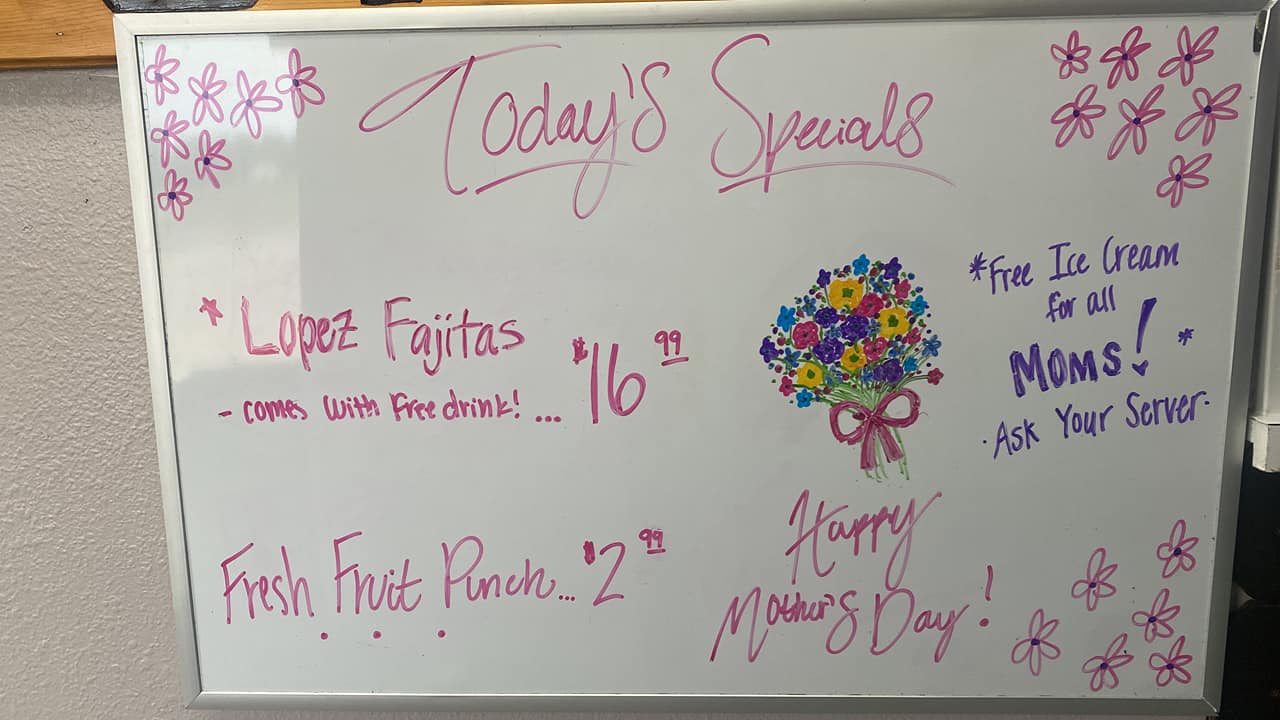 Today's Specials
* Lopez Fajitas
- comes with Free drink! ... $16 99
Fresh Fruit Punch... $2 99
*Free Ice Cream
for all
Moms! *
· Ask Your Server ·
Happy
Mother's Day!